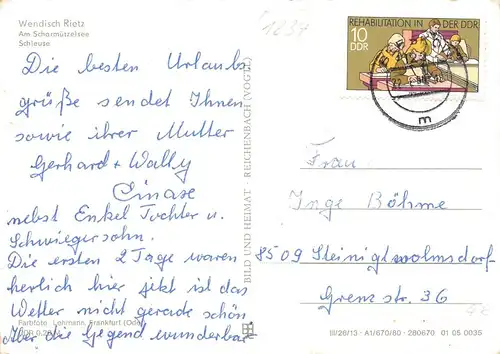 Wendisch Rietz
Am Scharmützelsee
Schleuse
1237
Die besten Urlaubs
grüße sendet Ihnen
sowie ihrer Mutter
Gerhard + Wally
nebst Enkel Tochter u.
Schwiegersohn.
Die ersten 2 Tage waren
herlich hier jetzt ist das
Wetter nicht gerade schön
Aber die Gegend wunderbar
Farbfoto Lehmann, Frankfurt (Oder)
BILD UND HEIMAT · REICHENBACH (VOGTL)
REHABILITATION IN DER DDR
10
DDR
m
Frau
Inge Böhme
8509 Steinigtwolmsdorf-
Grenzstr. 36
III/26/13 · A1/670/80 · 280670 01 05 0035